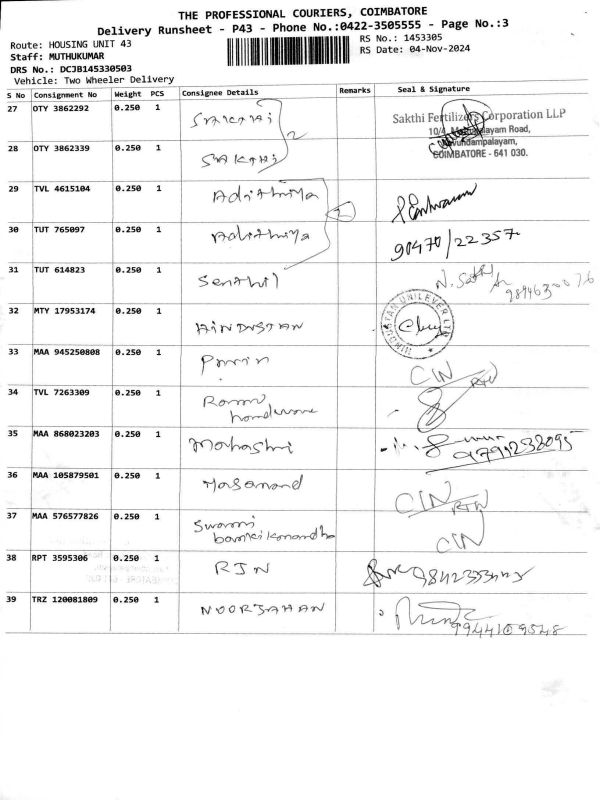 THE PROFESSIONAL COURIERS, COIMBATORE
Delivery Runsheet - P43 - Phone No.:0422-3505555 - Page No.:3
Route: HOUSING UNIT 43
RS No.: 1453305
Staff: MUTHUKUMAR
RS Date: 04-Nov-2024
DRS No.: DCJB145330503
Vehicle: Two Wheeler Delivery
S No Consignment No Weight PCS Consignee Details Remarks Seal & Signature
27 OTY 3862292 0.250 1 SAKTHI
2
Sakthi Fertilizers Corporation LLP
Road,
COIMBATORE - 641 030.
28 OTY 3862339 0.250 1 SAKTHI
29 TVL 4615104 0.250 1 Adithiya
2
30 TUT 765097 0.250 1 Adithiya 90470/22357
31 TUT 614823 0.250 1 Senthil N. Sathi
9894630076
32 MTY 17953174 0.250 1 HINDUSTAN
HINDUSTAN UNILEVER LTD
33 MAA 945250808 0.250 1 CIN
RTN
34 TVL 7263309 0.250 1 Raman
hardware
35 MAA 868023203 0.250 1
9791238095
36 MAA 105879501 0.250 1 CIN
RTN
37 MAA 576577826 0.250 1 Swami
CIN
38 RPT 3595306 0.250 1 RJN
39 TRZ 120081809 0.250 1 NOORJAHAN
9944109548